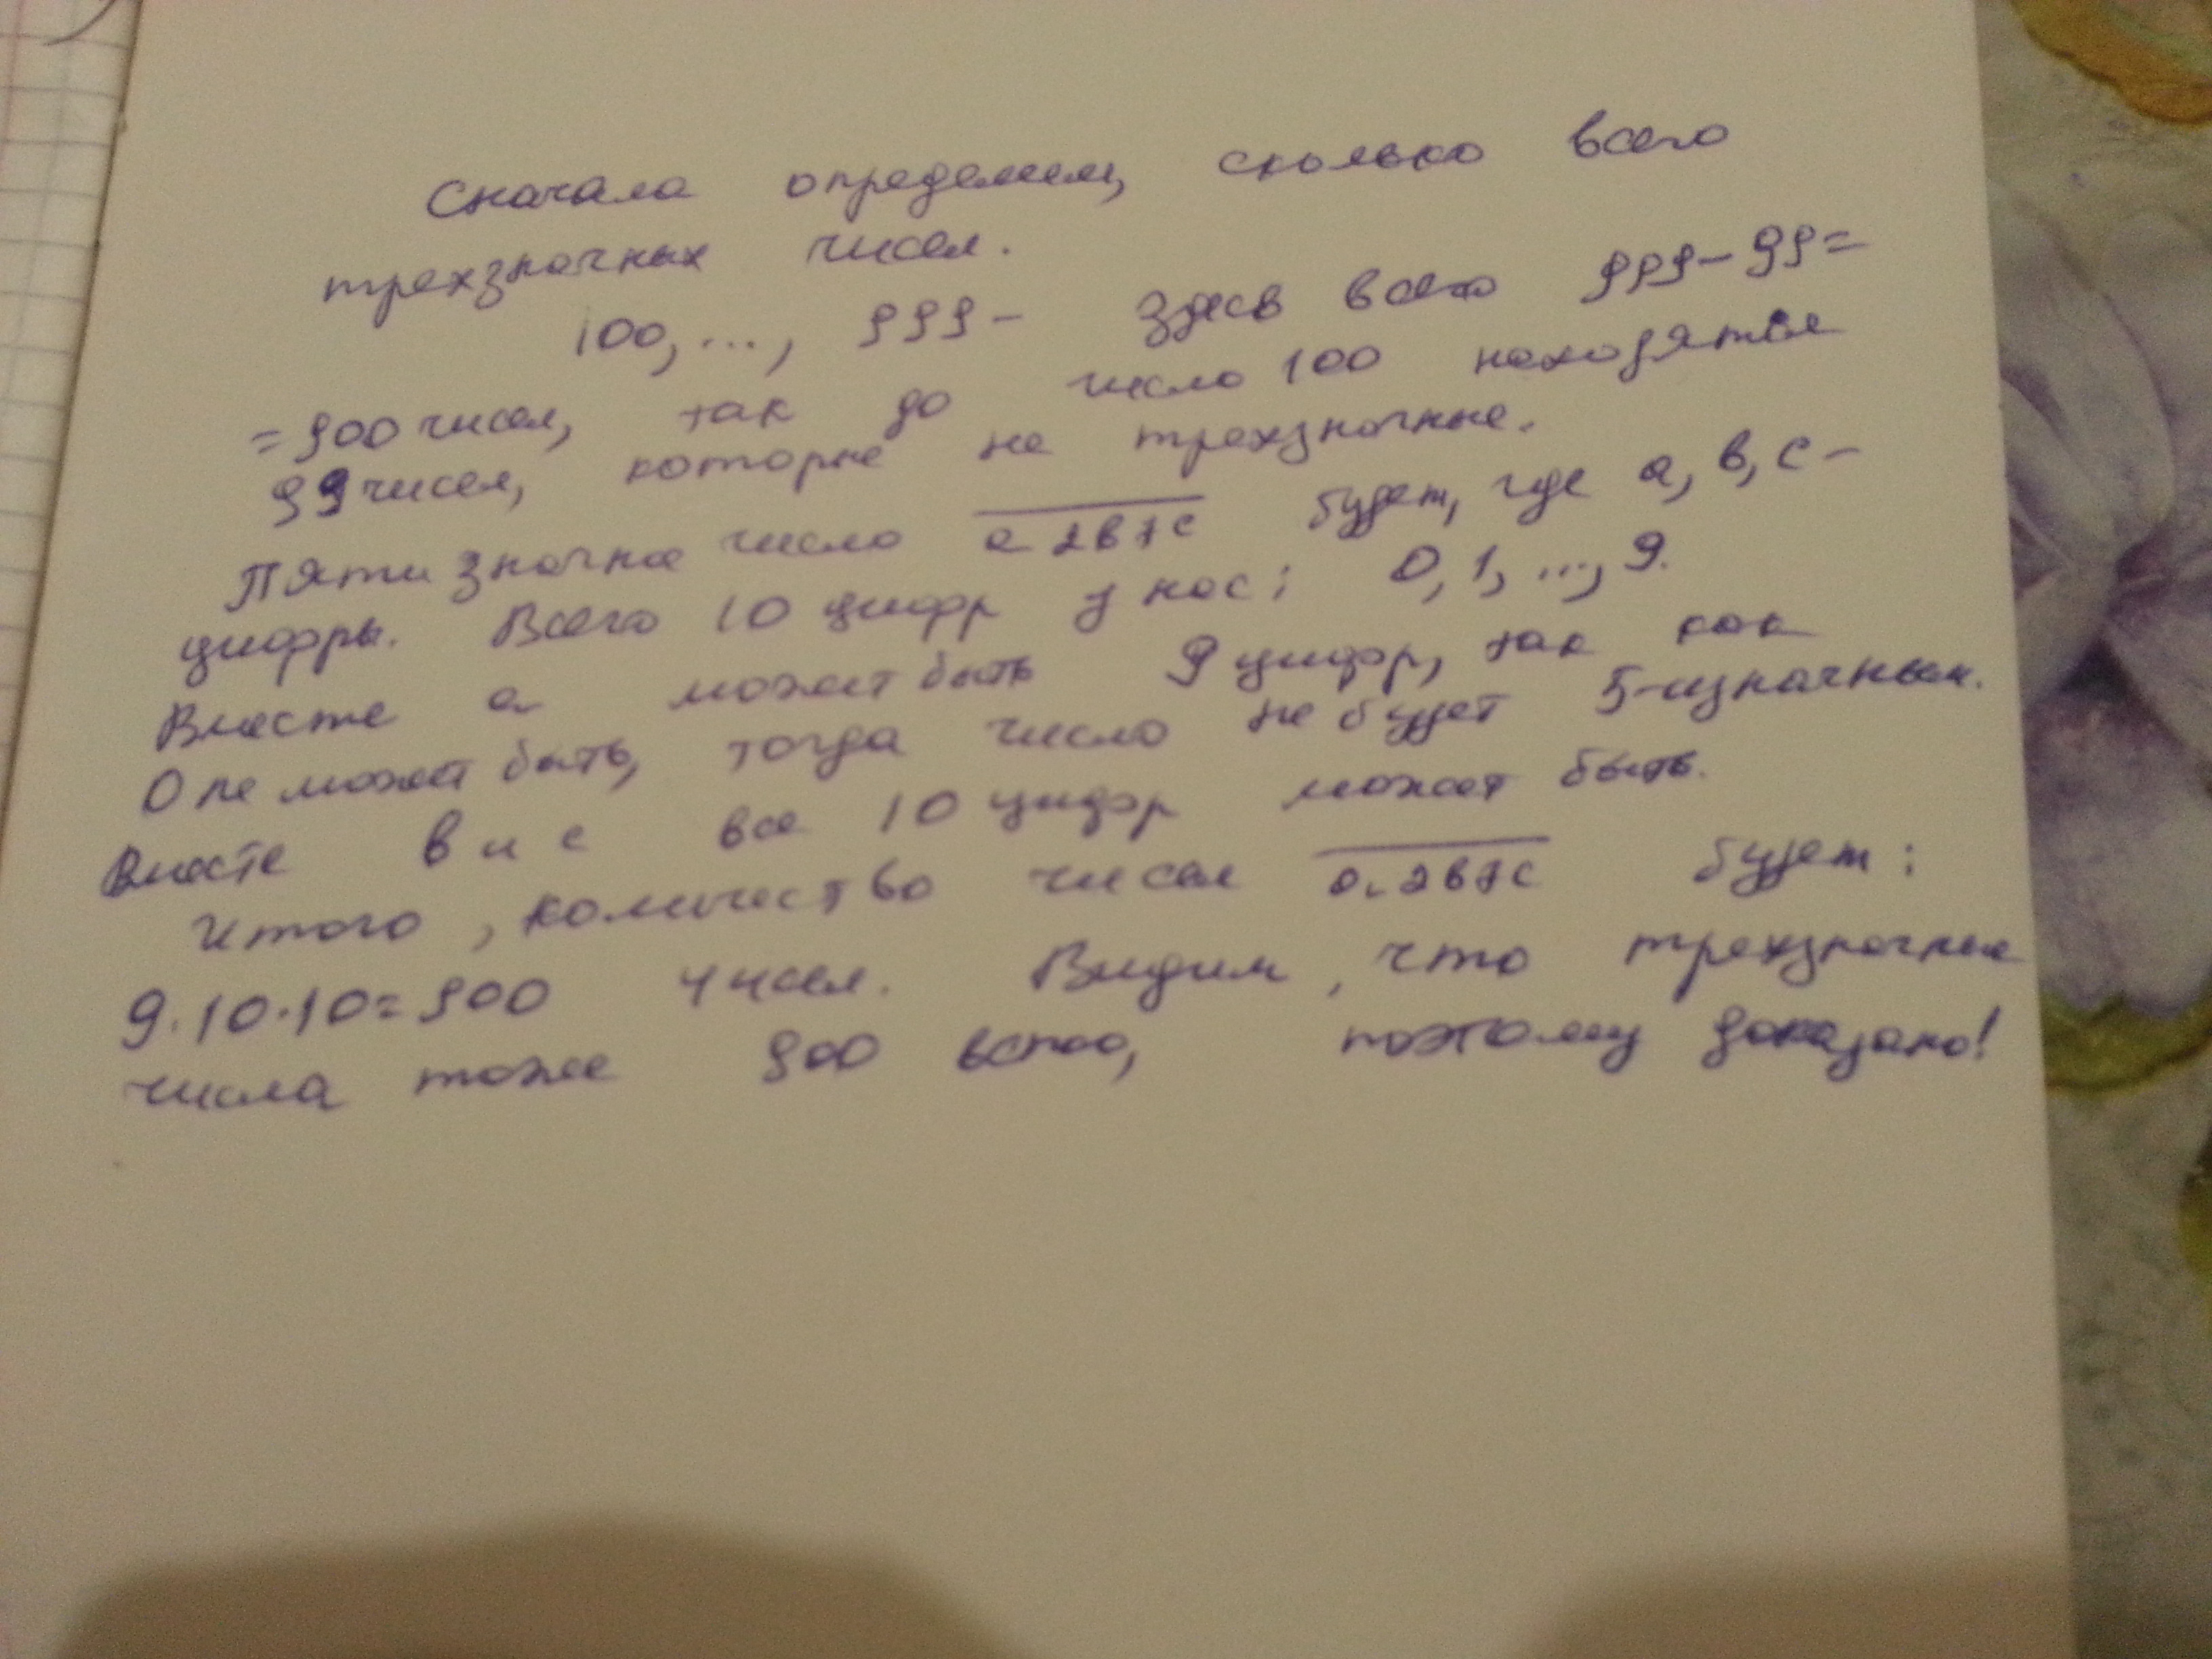 Сначала определим, сколько всего
трехзначных чисел.
100, ..., 999 - здесь всего 999-99=
=900 чисел, так до число 100 находятся
99 чисел, которые не трехзначные.
Пятизначное число a2b7c будет, где a, b, c -
цифры. Всего 10 цифр у нас: 0, 1, ..., 9.
Вместе a может быть 9 цифр, так как
0 не может быть, тогда число не будет 5-изначным.
Вместе b и c все 10 цифр может быть.
Итого, количество чисел a2b7c будет:
9·10·10=900 чисел. Видим, что трехзначные
числа тоже 900 поэтому доказано!